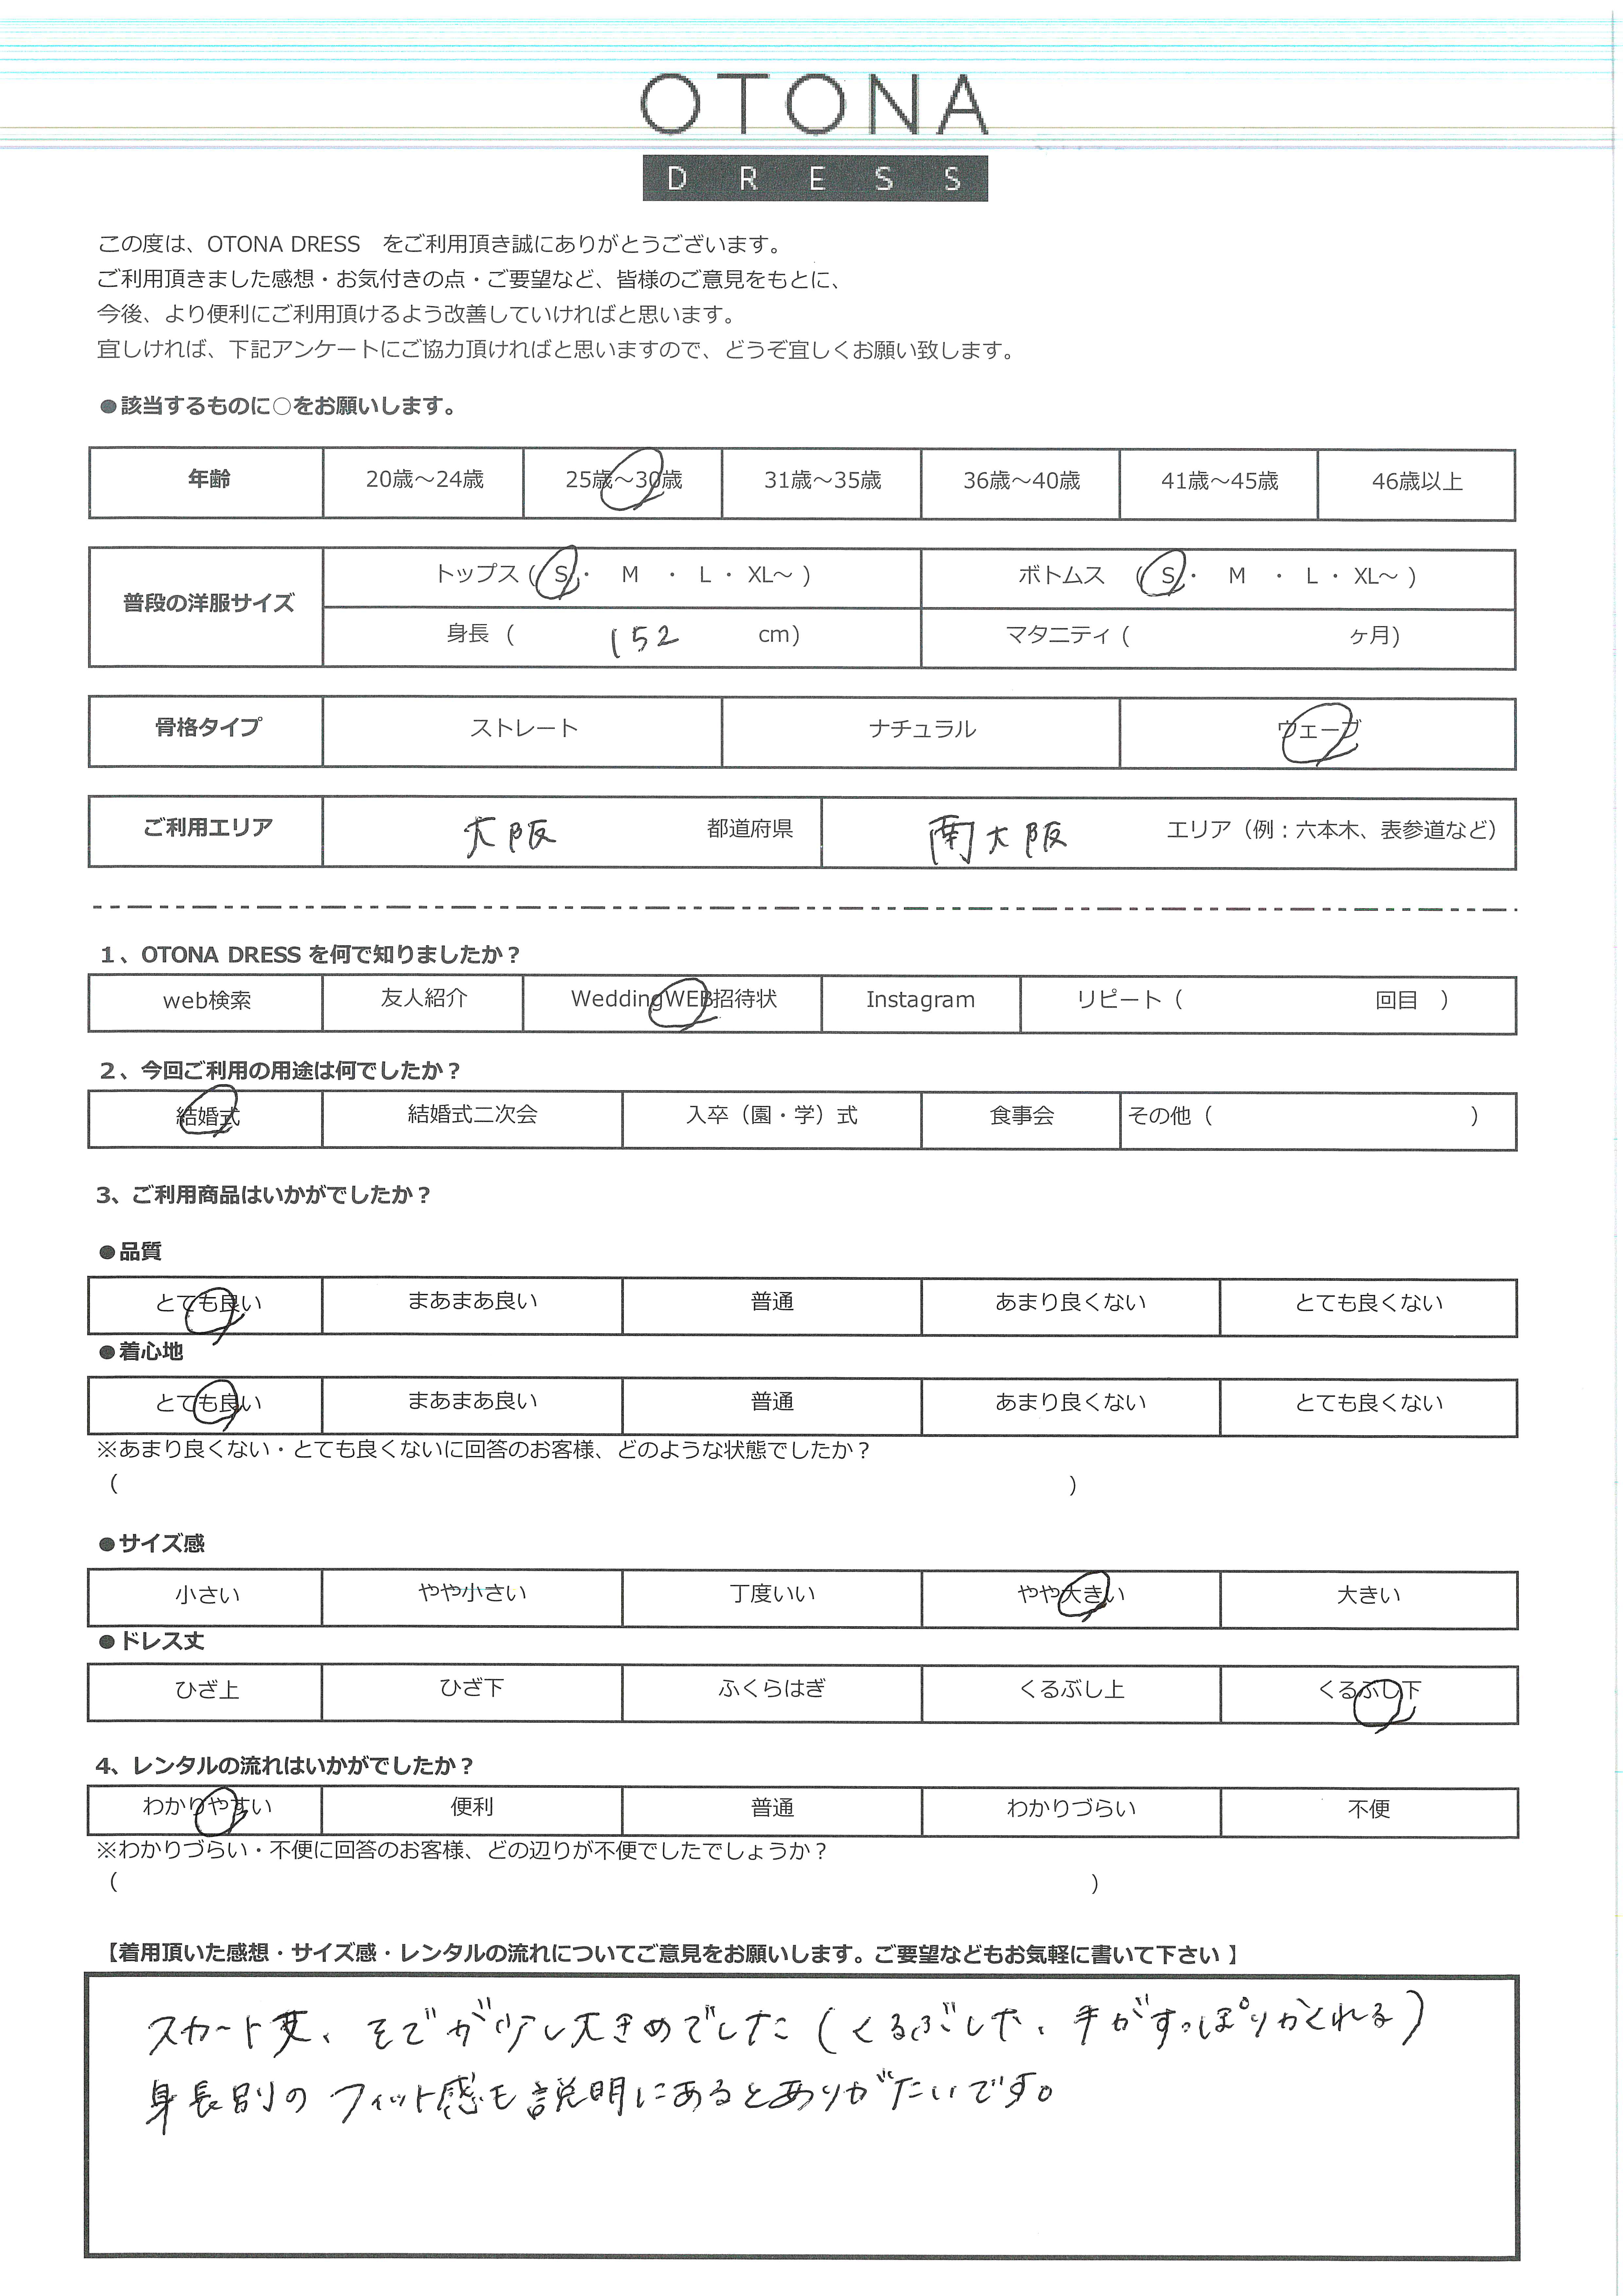 OTONA
DRESS
この度は、OTONA DRESS　をご利用頂き誠にありがとうございます。
ご利用頂きました感想・お気付きの点・ご要望など、皆様のご意見をもとに、
今後、より便利にご利用頂けるよう改善していければと思います。
宜しければ、下記アンケートにご協力頂ければと思いますので、どうぞ宜しくお願い致します。
●該当するものに○をお願いします。
年齢 20歳～24歳 25歳～30歳 31歳～35歳 36歳～40歳 41歳～45歳 46歳以上
普段の洋服サイズ トップス ( S ・ M ・ L ・ XL～ ) ボトムス ( S ・ M ・ L ・ XL～ )
身長 ( 152 cm) マタニティ ( ヶ月)
骨格タイプ ストレート ナチュラル ウェーブ
ご利用エリア 大阪 都道府県 南大阪 エリア（例：六本木、表参道など）
1、OTONA DRESS を何で知りましたか？
web検索 友人紹介 WeddingWEB招待状 Instagram リピート（ 回目 ）
2、今回ご利用の用途は何でしたか？
結婚式 結婚式二次会 入卒（園・学）式 食事会 その他（ ）
3、ご利用商品はいかがでしたか？
●品質
とても良い まあまあ良い 普通 あまり良くない とても良くない
●着心地
とても良い まあまあ良い 普通 あまり良くない とても良くない
※あまり良くない・とても良くないに回答のお客様、どのような状態でしたか？
（ ）
●サイズ感
小さい やや小さい 丁度いい やや大きい 大きい
●ドレス丈
ひざ上 ひざ下 ふくらはぎ くるぶし上 くるぶし下
4、レンタルの流れはいかがでしたか？
わかりやすい 便利 普通 わかりづらい 不便
※わかりづらい・不便に回答のお客様、どの辺りが不便でしたでしょうか？
（ ）
【着用頂いた感想・サイズ感・レンタルの流れについてご意見をお願いします。ご要望などもお気軽に書いて下さい 】
スカート丈、そでが少し大きめでした（くるぶし下、手がすっぽりかくれる）
身長別のフィット感も説明にあるとありがたいです。